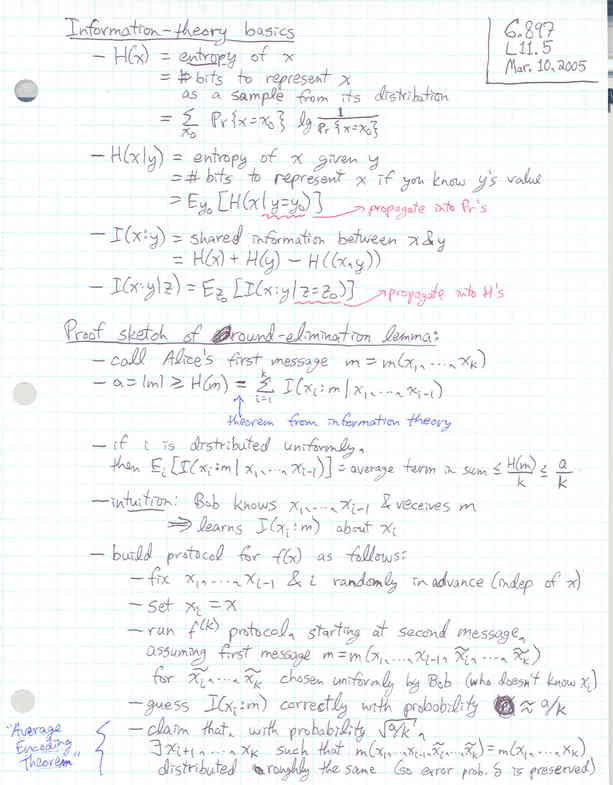 6.897
L11.5
Mar. 10, 2005
Information-theory basics
– H(x) = entropy of x
= # bits to represent x
as a sample from its distribution
= Σ_{x₀} Pr{x=x₀} lg 1/Pr{x=x₀}
– H(x|y) = entropy of x given y
= # bits to represent x if you know y's value
= E_{y₀} [H(x|y=y₀)] → propagate into Pr's
– I(x:y) = shared information between x & y
= H(x) + H(y) – H((x,y))
– I(x:y|z) = E_{z₀} [I(x:y|z=z₀)] → propagate into H's
Proof sketch of round-elimination lemma:
– call Alice's first message m = m(x₁, ..., x_k)
– a = |m| ≥ H(m) = Σ_{i=1}^{k} I(x_i : m | x₁, ..., x_{i-1})
theorem from information theory
– if i is distributed uniformly,
then E_i[I(x_i : m | x₁, ..., x_{i-1})] = average term in sum ≤ H(m)/k ≤ a/k
– intuition: Bob knows x₁, ..., x_{i-1} & receives m
⇒ learns I(x_i : m) about x_i
– build protocol for f(x) as follows:
– fix x₁, ..., x_{i-1} & i randomly in advance (indep of x)
– set x_i = x
– run f^{(k)} protocol, starting at second message,
assuming first message m = m(x₁, ..., x_{i-1}, x̃_i, ..., x̃_k)
for x̃_i, ..., x̃_k chosen uniformly by Bob (who doesn't know x_i)
– guess I(x_i : m) correctly with probability ≈ a/k
– claim that, with probability √(a/k),
∃ x_{i+1}, ..., x_k such that m(x₁, ..., x_{i-1}, x̃_i, ..., x̃_k) = m(x₁, ..., x_k)
distributed roughly the same (so error prob. δ is preserved)
"Average
Encoding
Theorem"